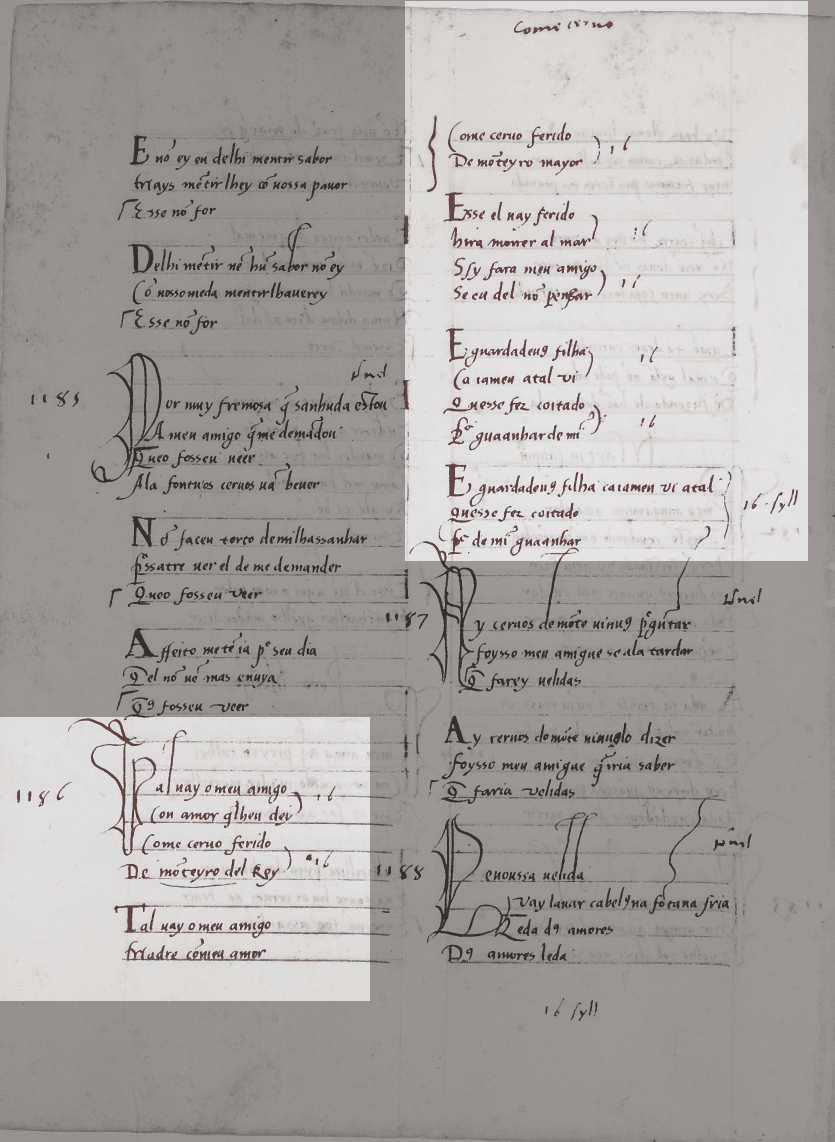 E nō ey en delhi mentir sabor
Mays mētir lhey cō uossa pauor
Esse nō for
Delhi mētir nē hū sabor nō ey
Cō uosso meda mentirlhauerey
Esse nō for
1185
Por muy fremosa q̄ sanhuda estou
A meu amigo q̄me demādou
Queo fosseu ueer
Ala fontuos ceruos uā beuer
Nō faceu torto demilhassanhar
Queo fosseu veer
Affeito me tē ia pº seu dia
Qel nō uē mas enuya
Qꝯ fosseu veer
1186
Tal uay o meu amigo
Con amor q̄lheu dei
Come ceruo ferido
De mōteyro del Rey
16
16
Tal uay o meu amigo
Madre cōmeu amor
Come ceruo
Come ceruo ferido
De mōteyro mayor
16
Esse el uay ferido
hira morrer al mar
16
Ssy fara meu amigo
Se eu del nō penssar
16
E guardadeuꝯ filha
Ca iameu atal vi
16
Quesse fez coitado
Pº guaanhar de mī
16
E guardadeuꝯ filha caiameu vi atal
Quesse fez coitado
Pº de mī guaanhar
16 syll
1187
Ay ceruos demōte uinuꝯ p̄gūtar
foysso meu amigue se ala tardar
Q̄ farey uelidas
Ay ceruos demōte uinuolo dizer
foysso meu amigue q̄iria saber
Q̄ faria velidas
1188
Leuoussa uelida
Vay lauar cabelꝯna fōtana fria
Leda dꝯ amores
Dꝯ amores leda
16 syll